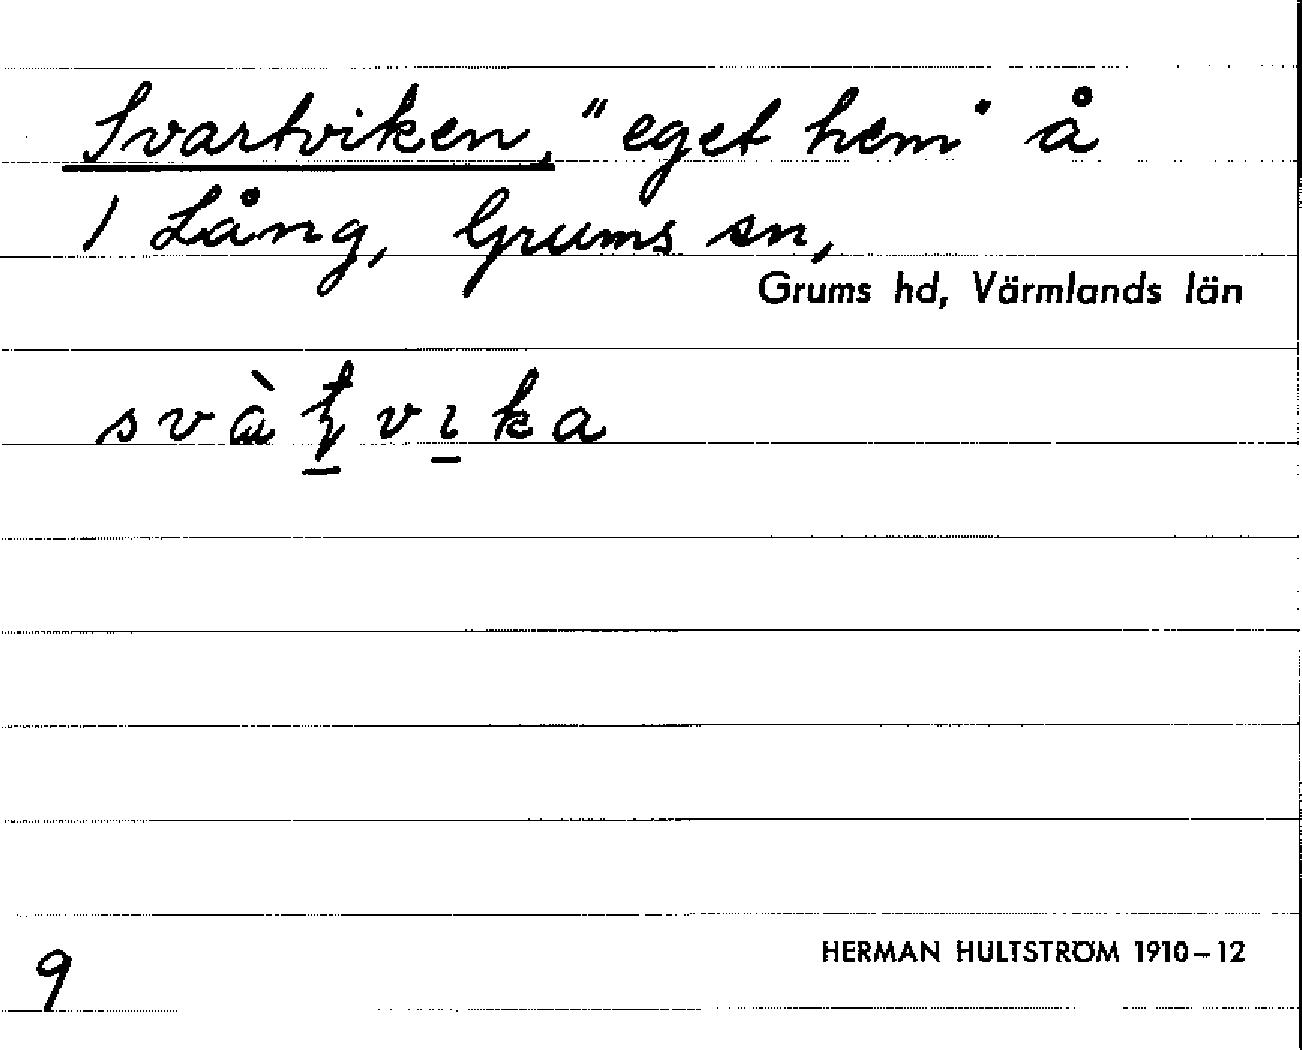 Svartviken, "eget hem" å
1 Lång, Grums sn,
Grums hd, Värmlands län
svàʈvɩka
9
HERMAN HULTSTRÖM 1910–12